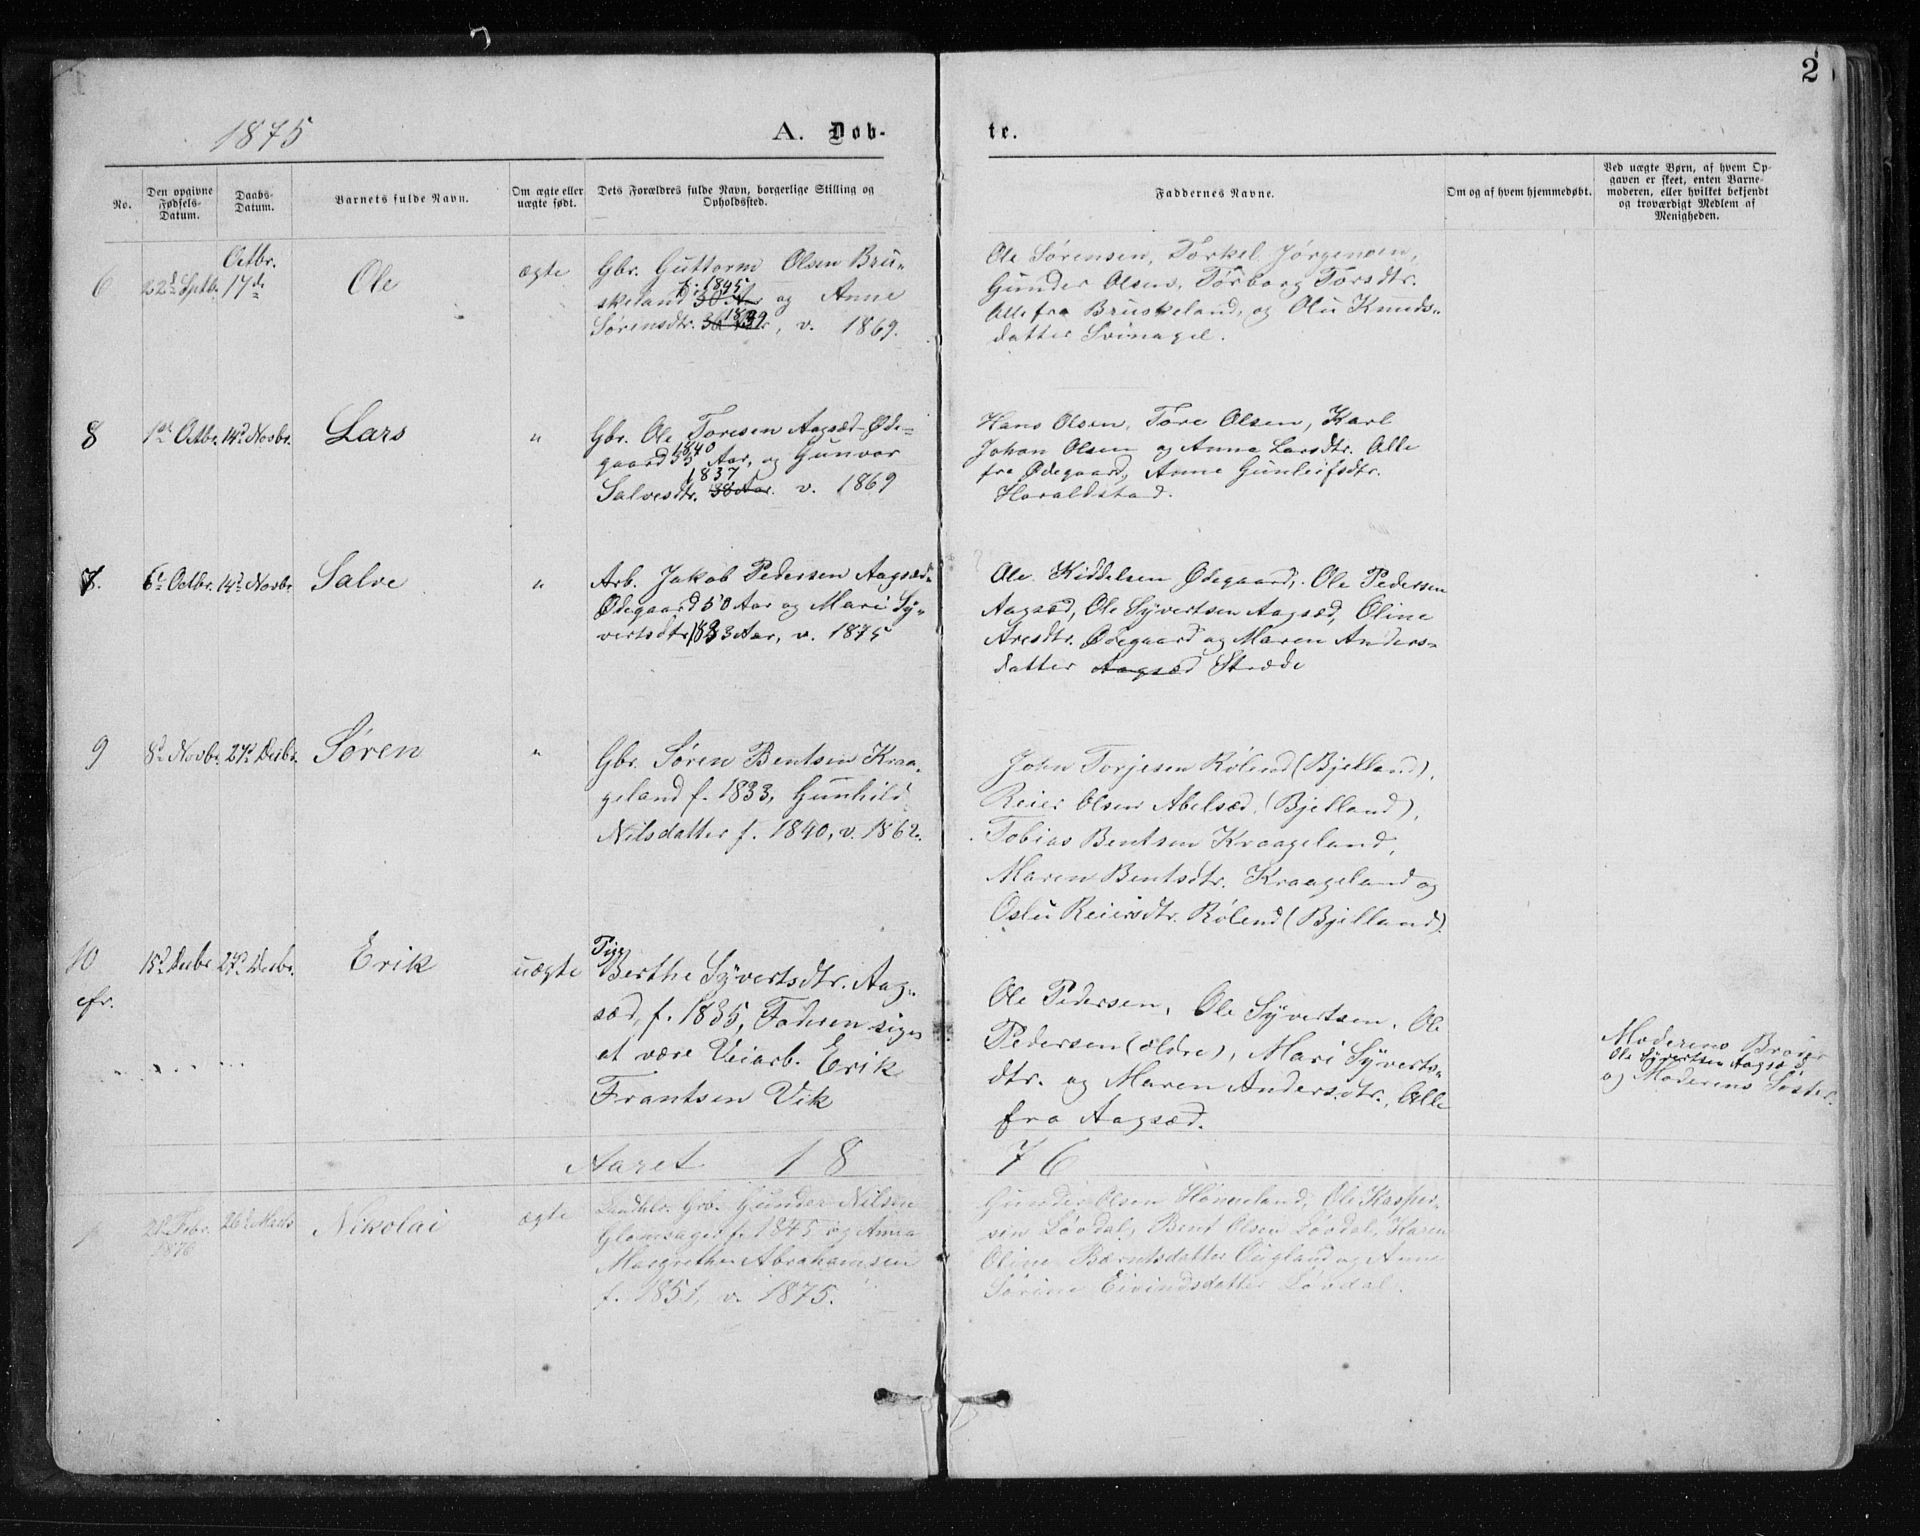 2
1875
A. Dob-
te.
No.
Den opgivne Fødsels-Datum.
Daabs-Datum.
Barnets fulde Navn.
Om ægte eller uægte født.
Dets Forældres fulde Navn, borgerlige Stilling og Opholdssted.
Faddernes Navne.
Om og af hvem hjemmedøbt.
Ved uægte Børn, af hvem Op-
gaven er skeet, enten Barne-
moderen, eller hvilket bekjendt
og troværdigt Medlem af
Menigheden.
6 22d Septbr. Octbr. 17de Ole ægte
Gbr. Guttorm Olsen Bru-
skeland f. 1845 30 Aar og Anne
Sørensdtr. 1839, v. 1869.
Ole Sørensen, Torkel Jørgensen,
Gunder Olsen, Torborg Torsdtr.
Alle fra Bruskeland, og Olu Knuds-
datter Svinagel.
8 1st Octbr. 14d Novbr. Lars "
Gbr. Ole Toresen Aagsæd-Øde-
gaard 1840 35 Aar, og Gunvor
Salvesdtr. 1837 38 Aar. v. 1869
Hans Olsen, Tore Olsen, Karl
Johan Olsen og Anne Larsdtr. Alle
fra Ødegaard, Anne Gunleifsdtr.
Haraldstad.
7. 6t Octbr. 14d Novbr. Salve "
Arb. Jakob Pedersen Aagsæd-
Ødegaard 50 Aar og Mari Sy-
vertsdtr. 1833 Aar, v. 1875
Ole Kiddelsen Ødegaard, Ole Pedersen
Aagsæd, Ole Syvertsen Aagsæd, Oline
Aresdtr. Ødegaard og Maren Anders-
datter Aagsæd Stræde
9 8d Novbr. 27d Decbr. Søren "
Gbr. Søren Bentsen Kraa-
geland f. 1833, Gunhild
Nilsdatter f. 1840, v. 1862.
John Torjesen Rølend (Bjelland),
Reier Olsen Abelsæd, (Bjelland),
Tobias Bentsen Kraageland,
Maren Bentsdtr. Kraageland og
Oslu Reiersdtr. Rølend (Bjelland)
10 15d Decbr 27d Decbr. Erik uægte
cfr.
Pige
Berthe Syvertsdtr. Aag-
sæd, f. 1835, Faderen siges
at være Veiarb. Erik
Frantsen Vik
Ole Pedersen, Ole Syvertsen, Ole
Pedersen (ældre), Mari Syverts-
dtr. og Maren Andersdtr., Alle
fra Aagsæd.
Moderens Broder
Ole Syvertsen Aagsæd
og Moderens Søster.
Aaret 18
76
1 21d Febr. 1876 26d Marts Nikolai ægte
Gbr. Gunder Nilsen
Glomsager f. 1845 og Anna
Margrethe Abrahamsen
f. 1851, v. 1875.
Gunder Olsen Høneland, Ole Kasper-
sen Løvdal, Bent Olsen Løvdal, Karen
Oline Berntsdatter Augland og Anne
Sørine Eivindsdatter Løvdal.